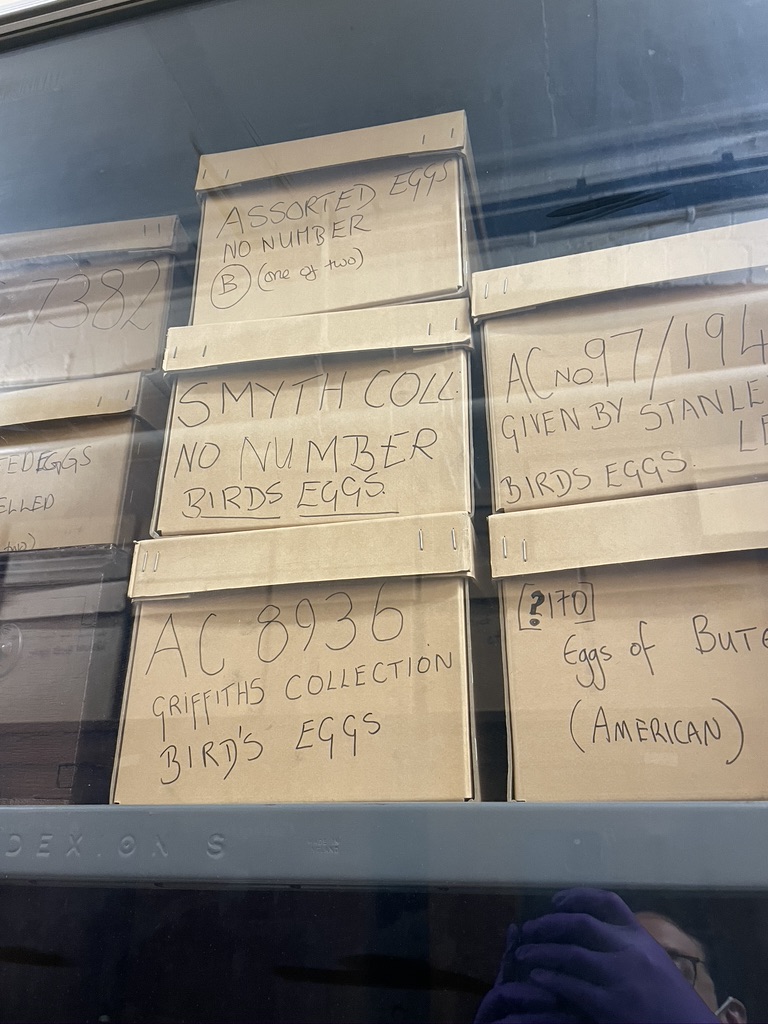 ASSORTED EGGS
NO NUMBER
B (one of two)
7382
SMYTH COLL
NO NUMBER
BIRDS EGGS.
AC NO. 97/194
GIVEN BY STANLE
LE
BIRDS EGGS.
TED EGGS
ELLED
two)
AC 8936
GRIFFITHS COLLECTION
BIRD'S EGGS
[?170]
Eggs of BUTE
(AMERICAN)
DEXION S